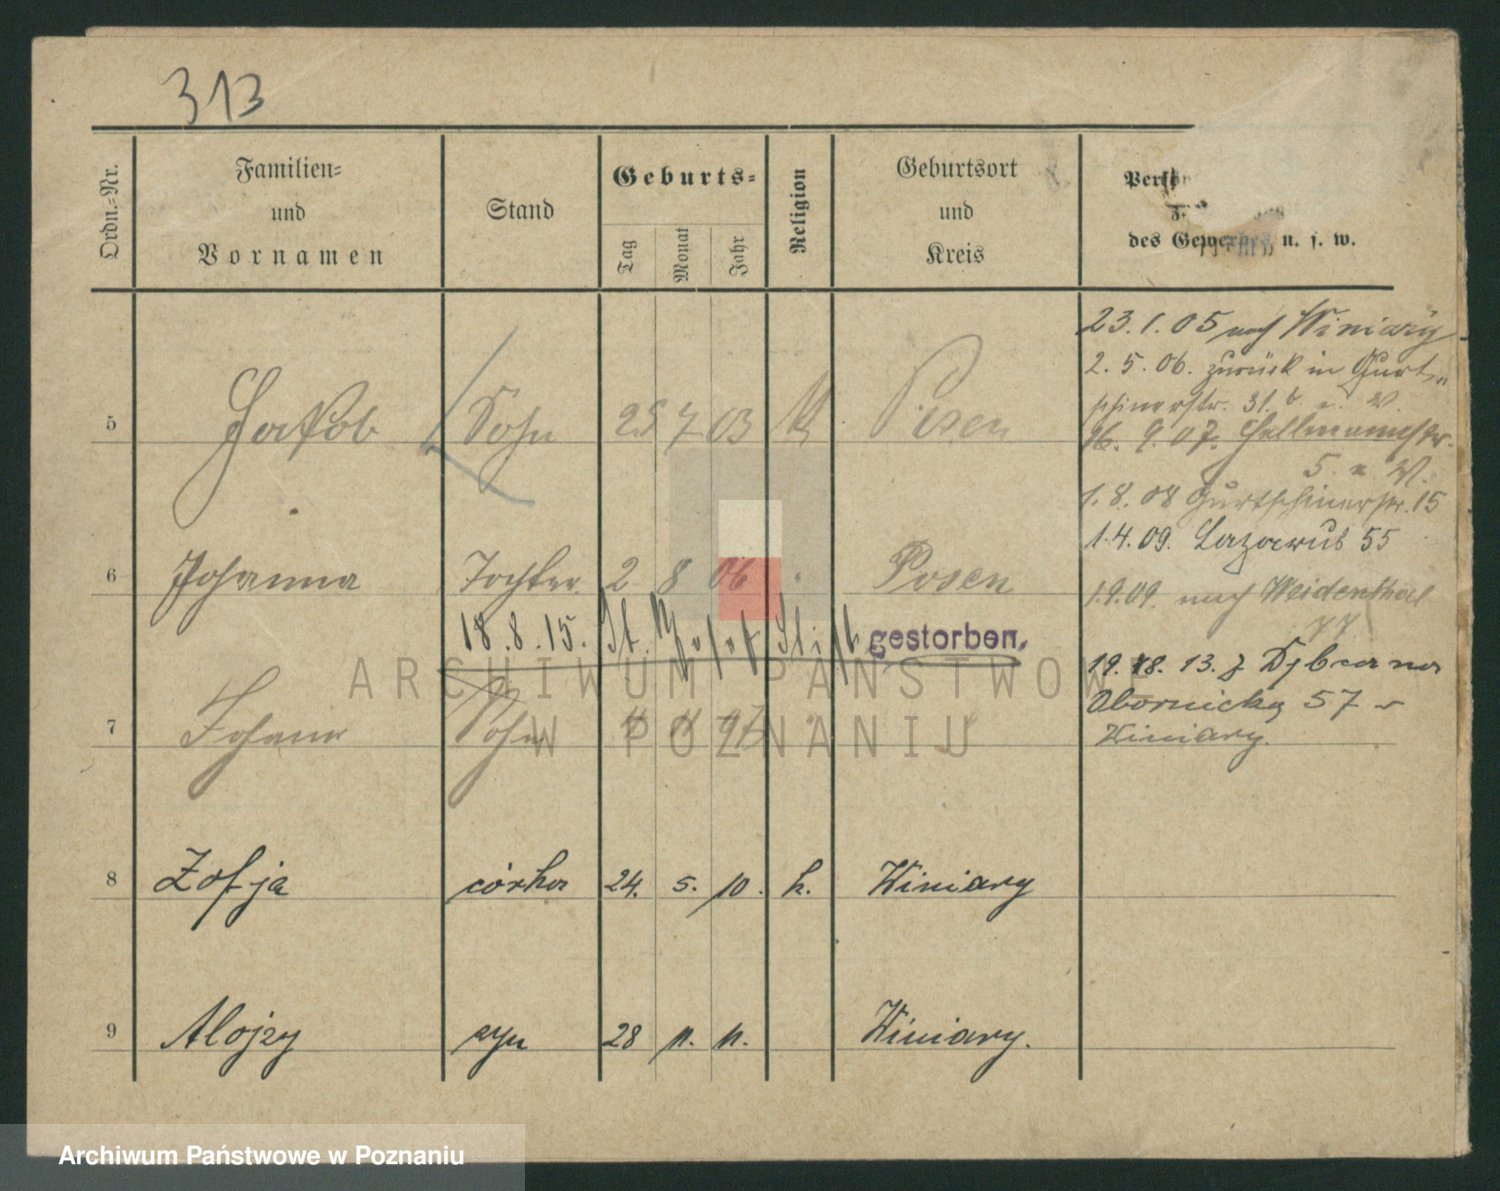 313
Ordn.-Nr.
Familien-
und
Vornamen
Stand
Geburts-
Tag
Monat
Jahr
Religion
Geburtsort
und
Kreis
des Gewerbes u. s. w.
23.1.05 nach Winiary
2.5.06. zurück in Gurt-
schinerstr. 31. b. u. W.
16. 9. 07.
5. u. W.
1.8.08 Gurtschinerstr. 15
1.4.09. Lazarus 55
1.9.09. nach Weidenthal
77
19. 18. 13. z
Obornicka 57 -
Winiary.
5 Jakob Sohn 25 7 03 K Posen
6 Johanna Tochter 2 8 06 " Posen
18.8.15. St. gestorben.
7 Johann Sohn
8 Zofja córka 24. 5. 10. k. Winiary
9 Alojzy syn 28 11. 11. Winiary.
ARCHIWUM PAŃSTWOWE
W POZNANIU
Archiwum Państwowe w Poznaniu